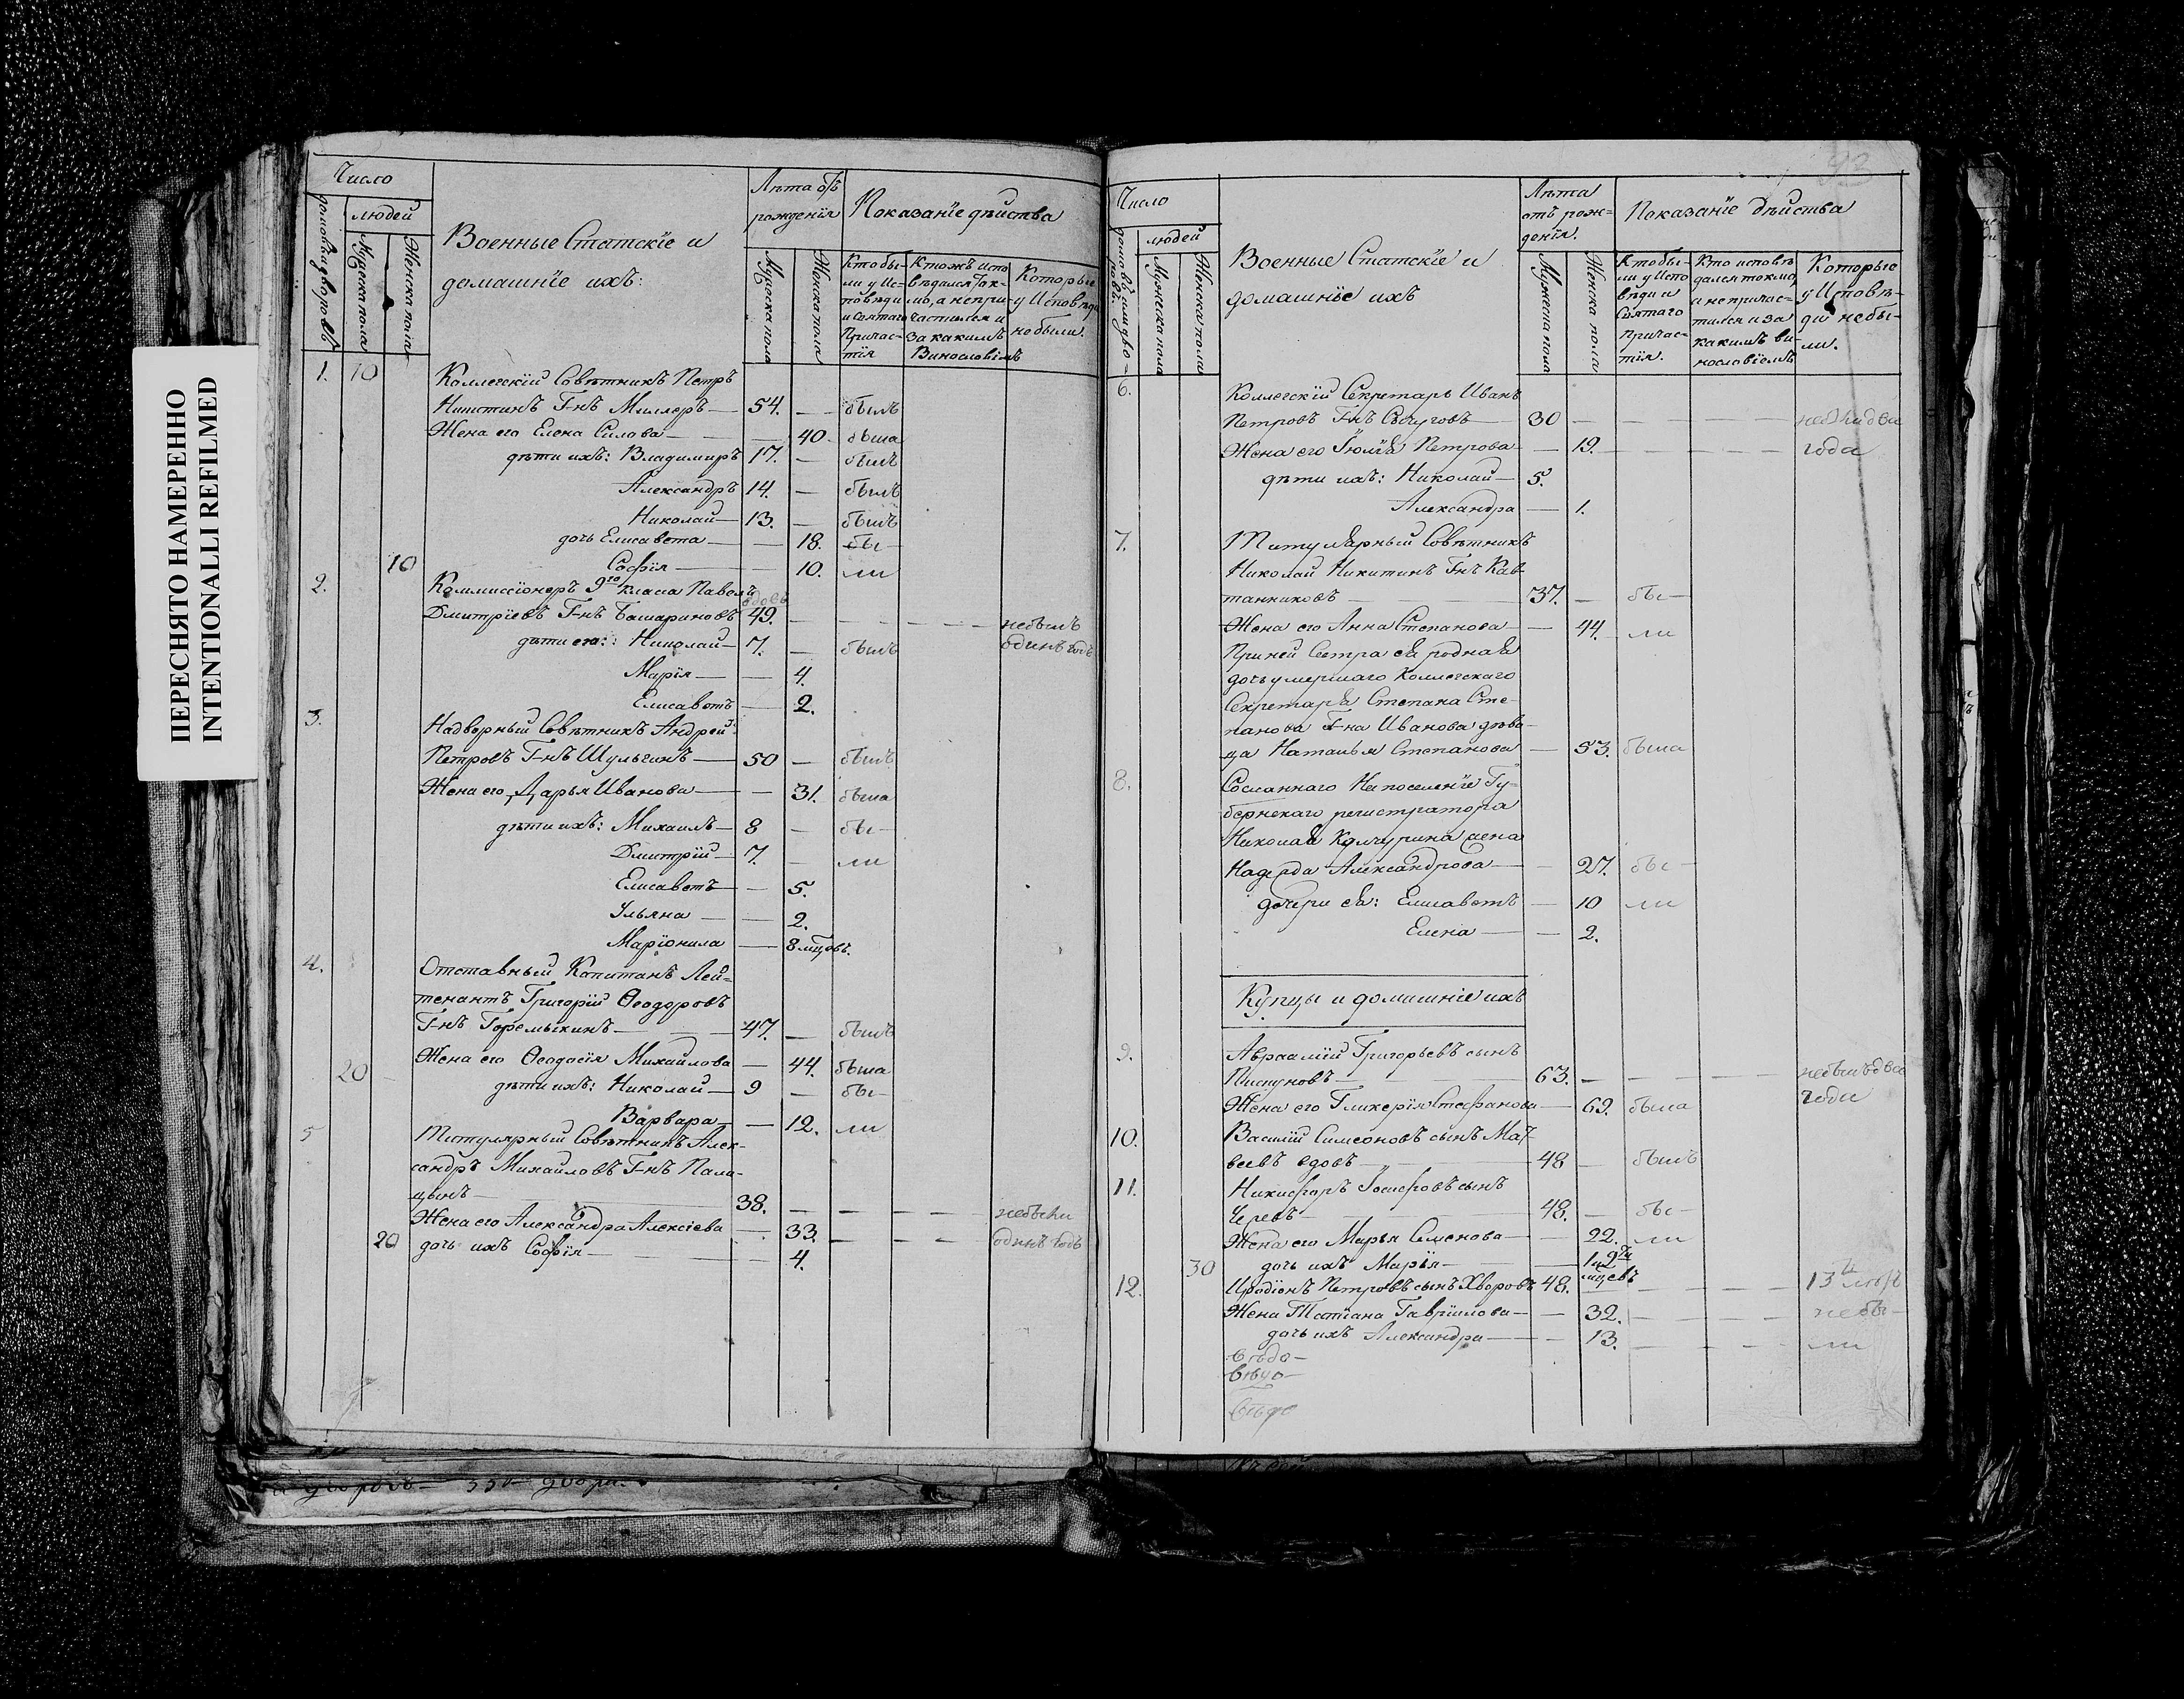 ПЕРЕСНЯТО НАМЕРЕННО
INTENTIONALLI REFILMED
Число
домовъ или дворовъ
людей
Мужеска пола
Женска пола
Военные Статскïе и
домашнïе ихъ:
Лѣта отъ
рожденïя
Мужеска пола
Женска пола
Показанïе дѣйства
Кто бы-
ли у Ис-
повѣди
и Святаго
Причас-
тïя
Кто жъ испо
вѣдался ток-
мо, а непри-
частился и
за какимъ
Винословïемъ
Которые
у Исповѣди
небыли.
1. 10 Коллегскïй Совѣтникъ Петръ
Г-нъ Миллеръ — 54. — былъ
Жена его Елена Силова — 40. была
дѣти ихъ: Владимиръ 17. — былъ
Александръ 14. — былъ
Николай — 13. — былъ
дочь Елисавета — 18. бы-
10 Софïя — 10. ли
2. Коммиссïонеръ 9го класа Павелъ
вдовъ
Дмитрïевъ Г-нъ Башариновъ 49. — небылъ
дѣти его: Николай — 7. — былъ одинъ годъ
Марïя — 4.
Елисаветъ — 2.
3. Надворный Совѣтникъ Андрей
Петровъ Г-нъ Шульгинъ — 50 — былъ
Жена его Дарья Иванова — 31. была
дѣти ихъ: Михаилъ — 8 — бы-
Дмитрïй — 7. — ли
Елисаветъ — 5.
Ульяна — 2.
Марïонила — 8 мцовъ.
4. Отставный Капитанъ Лей-
тенантъ Григорïй Ѳеодоровъ
Г-нъ Горемыкинъ — 47. — былъ
20 Жена его Ѳеодосïя Михайлова — 44. была
дѣти ихъ: Николай — 9 — бы-
Варвара — 12. ли
5 Титулярный Совѣтникъ Алек-
сандръ Михайловъ Г-нъ Пала-
цынъ — 38. — небыли
Жена его Александра Алексïева — 33. — одинъ годъ
20 дочь ихъ Софïя — 4.
93
Число
домовъ или дво-
ровъ.
людей
Мужеска пола
Женска пола
Военные Статскïе и
домашнïе ихъ
Лѣта
отъ рож-
денïя.
Мужеска пола
Женска пола
Показанïе дѣйства
Кто бы-
ли у Испо
вѣди и
Святаго
Причас-
тïя.
Кто исповѣ
дался токмо,
а непричас-
тился и за
какимъ ви-
нословïемъ
Которые
у Исповѣ-
ди небы-
ли.
6. Коллегскïй Секретарь Иванъ
Петровъ Г-нъ — 30 — небыли два
Жена его Iюлïя Петрова — 19. — года
дѣти ихъ: Николай — 5.
Александра — 1.
7. Титулярный Совѣтникъ
Николай Никитинъ Г-нъ Каф-
танниковъ — 37. — бы-
Жена его Анна Степанова — 44. ли
При ней Сестра ея родная
дочь умершаго Коллегскаго
Секретаря Степана Сте-
панова Г-на Иванова дѣви-
ца Наталья Степанова — 53. была
8. Сосланнаго На поселенïе Гу-
бернскаго регистратора
Николая Колчурина жена
Надежда Александрова — 27. бы-
дочери ея: Елисаветъ — 10 ли
Елена — 2.
Купцы и домашнïе ихъ
9. Авраамïй Григорьевъ сынъ
Пискуновъ — 63. — небылъ два
Жена его Гликерïя Стефанова — 69. была года
10. Василïй Симеоновъ сынъ Мат-
веевъ вдовъ — 48 — былъ
11. Никифоръ Iосифовъ сынъ
Черевъ — 48. — бы-
Жена его Марья Семенова — 22. ли
30 дочь ихъ Марья — 1 и 2ти
мцевъ
12. Иродïонъ Петровъ сынъ Хворовъ 48. — 13ть
Жена Татïана Гаврïилова — 32. — небы-
дочь ихъ Александра — 13. — ли